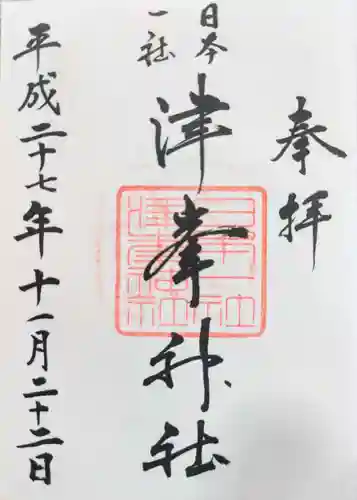 奉拝
日本
一社
津峯神社
平成二十七年十一月二十二日